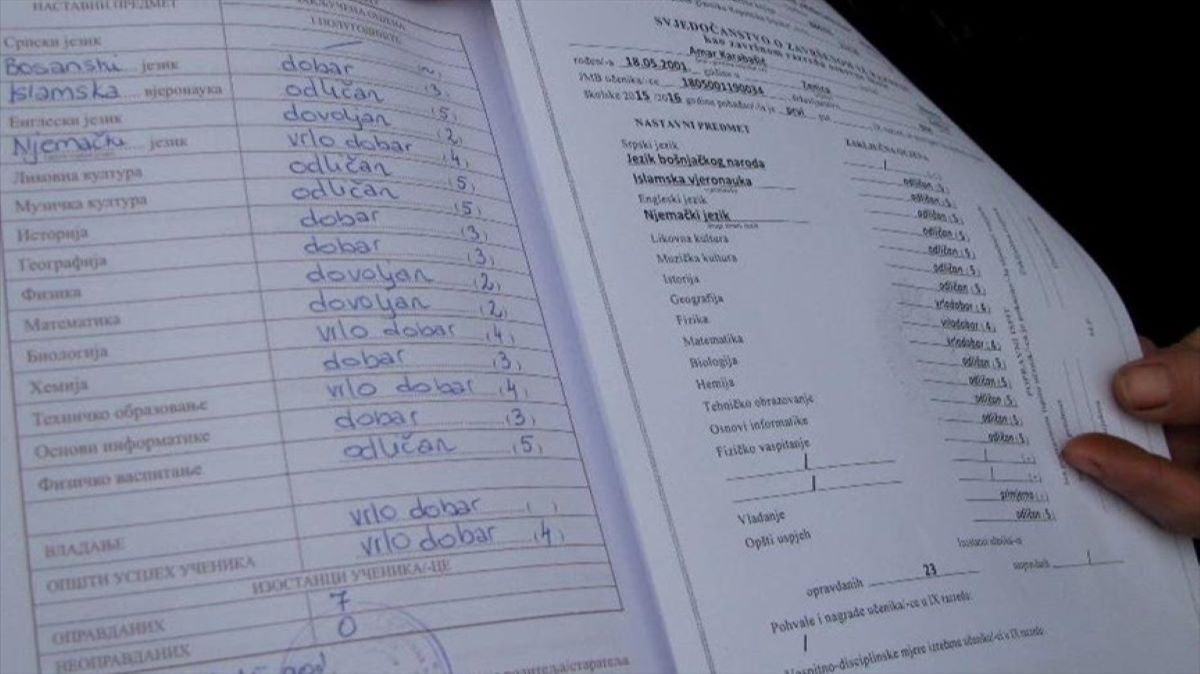 НАСТАВНИ ПРЕДМЕТ
ЗАКЉУЧЕНА ОЦЈЕНА
I ПОЛУГОДИШТЕ
Српски језик
Bosanski језик dobar (3)
Islamska вјеронаука odličan (5)
Енглески језик dovoljan (2)
Njemački језик vrlo dobar (4)
Ликовна култура odličan (5)
Музичка култура odličan (5)
Историја dobar (3)
Географија dobar (3)
Физика dovoljan (2)
Математика dovoljan (2)
Биологија vrlo dobar (4)
Хемија dobar (3)
Техничко образовање vrlo dobar (4)
Основи информатике dobar (3)
Физичко васпитање odličan (5)
ВЛАДАЊЕ vrlo dobar ( )
ОПШТИ УСПЈЕХ УЧЕНИКА vrlo dobar (4)
ИЗОСТАНЦИ УЧЕНИКА/-ЦЕ
ОПРАВДАНИХ 7
НЕОПРАВДАНИХ 0
SVJEDOČANSTVO O ZAVRŠENOM
kao završnom razredu
Amar Karabašić
rođen/-a 18.05.2001 godine u Zenica
JMB učenika/-ce 1805001190034
školske 2015/2016 godine pohađao/-la je prvi put
NASTAVNI PREDMET ZAKLJUČNA OCJENA
Srpski jezik /
Jezik bošnjačkog naroda odličan (5)
Islamska vjeronauka odličan (5)
Engleski jezik odličan (5)
Njemački jezik odličan (5)
Likovna kultura odličan (5)
Muzička kultura odličan (5)
Istorija vrlodobar (4)
Geografija vrlodobar (4)
Fizika vrlodobar (4)
Matematika odličan (5)
Biologija odličan (5)
Hemija odličan (5)
Tehničko obrazovanje odličan (5)
Osnovi informatike
Fizičko vaspitanje
/
/
Vladanje primjerno (-)
Opšti uspjeh odličan (5)
Izostanci učenika/-ce
opravdanih 23 neopravdanih /
Pohvale i nagrade učenika/-ce u IX razredu:
/
Vaspitno-disciplinske mjere izrečene učeniku/-ci u IX razredu:
POPRAVNI ISPIT
М.Р.